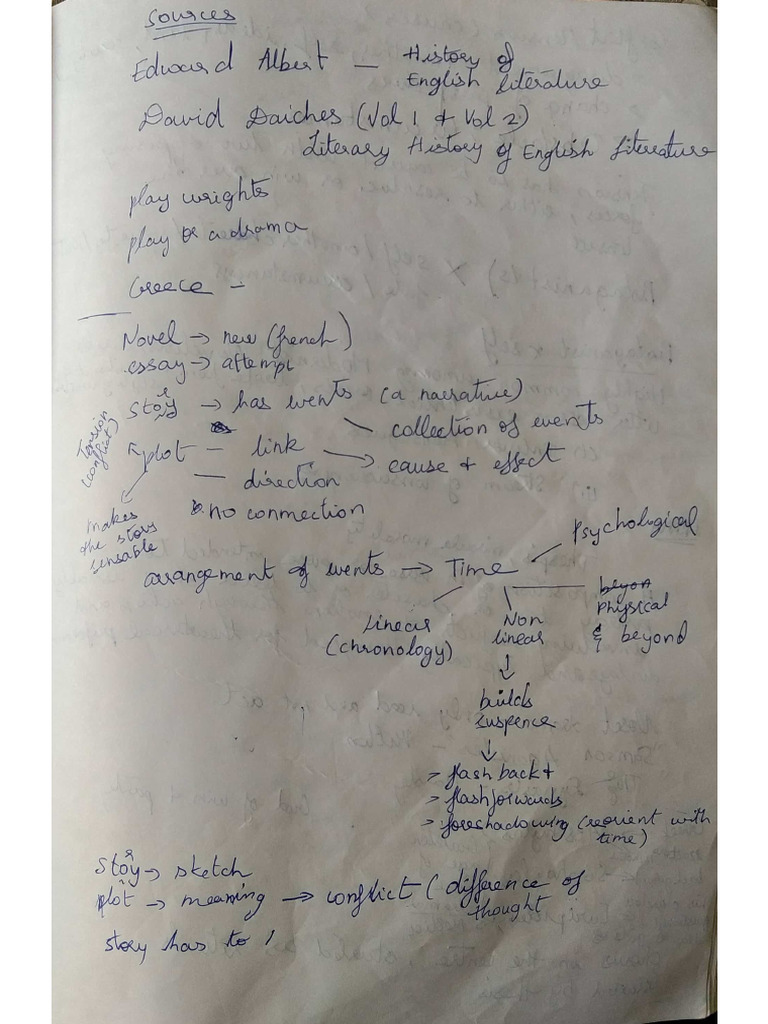 Sources
Edward Albert — History of
English literature
David Daiches (Vol 1 & Vol 2)
Literary History of English Literature
play wrights
play or a drama
Greece -
Novel → new (french)
essay → attempt
story → has events (a narrative)
collection of events
Tension
(conflict)
plot - link
→ cause & effect
— direction
no connection
makes
the story
sensable
arrangement of events → Time
Psychological
beyon
physical
& beyond
Linear
(chronology)
Non
linear
builds
suspence
> flash back &
> flashforwards
> foreshadowing (reorient with
time)
story → sketch
plot → meaning → conflict (difference of
thought
story has to